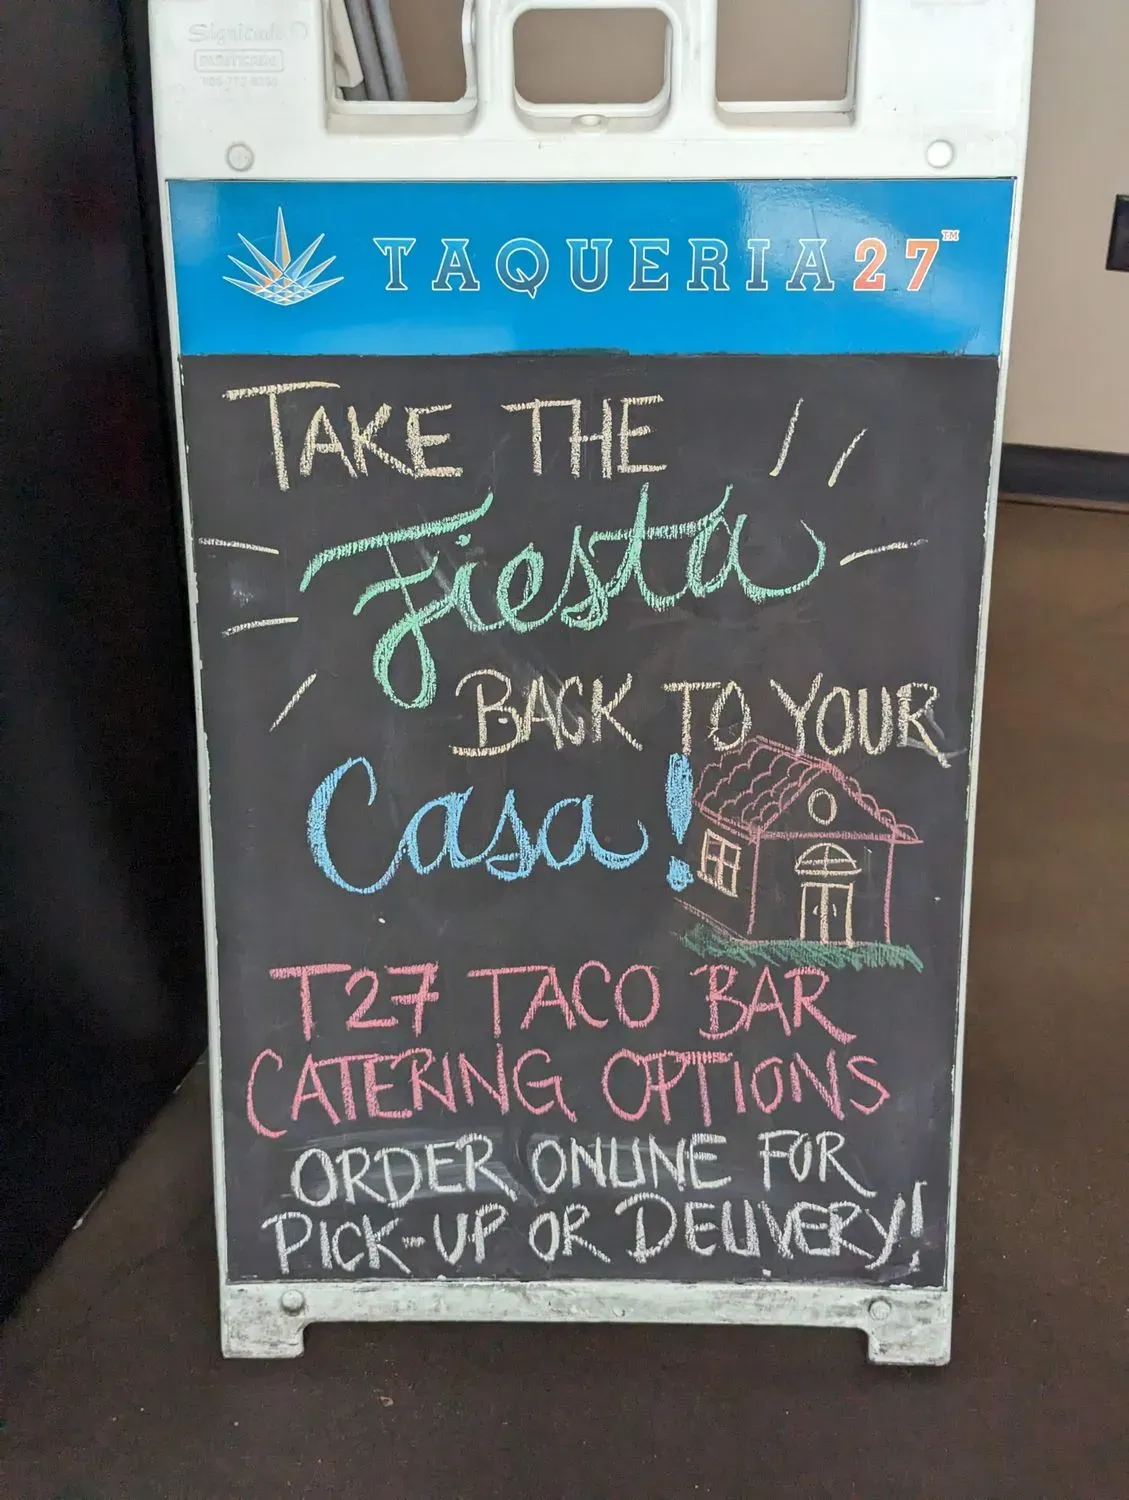 Signicade
PLASTICADE
TAQUERIA27™
TAKE THE
Fiesta
BACK TO YOUR
Casa!
T27 TACO BAR
CATERING OPTIONS
ORDER ONLINE FOR
PICK-UP OR DELIVERY!